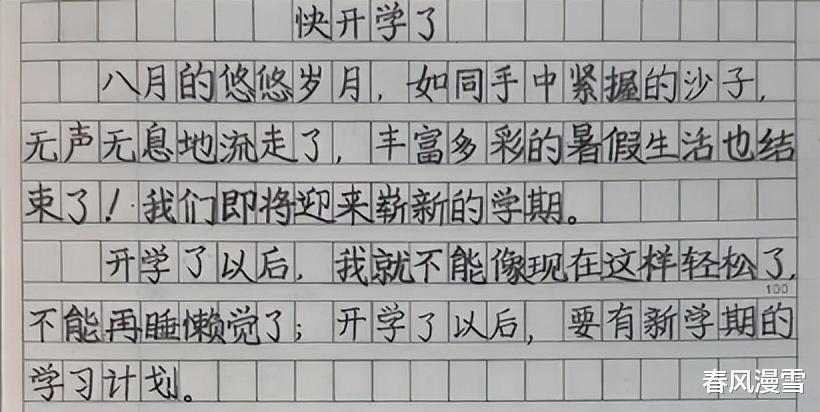 快开学了
八月的悠悠岁月，如同手中紧握的沙子，
无声无息地流走了，丰富多彩的暑假生活也结
束了！我们即将迎来崭新的学期。
开学了以后，我就不能像现在这样轻松了，
100
不能再睡懒觉了；开学了以后，要有新学期的
学习计划。
春风漫雪